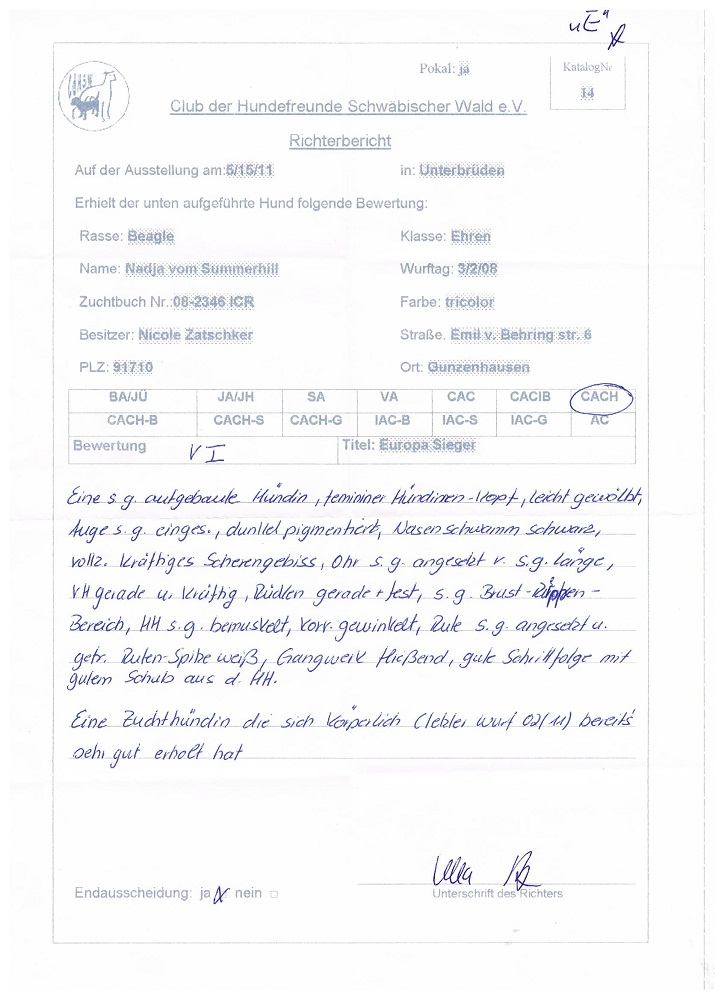 "E"
Pokal: ja
KatalogNr
14
CdHSW
Club der Hundefreunde Schwäbischer Wald e.V.
Richterbericht
Auf der Ausstellung am: 5/15/11 in: Unterbrüden
Erhielt der unten aufgeführte Hund folgende Bewertung:
Rasse: Beagle Klasse: Ehren
Name: Nadja vom Summerhill Wurftag: 3/2/08
Zuchtbuch Nr.: 08-2346 ICR Farbe: tricolor
Besitzer: Nicole Zatschker Straße. Emil v. Behring str. 6
PLZ: 91710 Ort: Gunzenhausen
BA/JÜ JA/JH SA VA CAC CACIB CACH
CACH-B CACH-S CACH-G IAC-B IAC-S IAC-G AC
Bewertung V I Titel: Europa Sieger
Eine s.g. aufgebaute Hündin, femininer Hündinen-Kopf, leicht gewölbt,
Auge s.g. einges., dunkel pigmentiert, Nasenschwamm schwarz,
vollz. kräftiges Scherengebiss, Ohr s.g. angesetzt v. s.g. länge,
VH gerade u. kräftig, Rücken gerade + fest, s.g. Brust-Rippen-
Bereich, HH s.g. bemuskelt, korr. gewinkelt, Rute s.g. angesetzt u.
getr. Ruten-Spitze weiß, Gangwerk fließend, gute Schrittfolge mit
gutem Schub aus d. HH.
Eine Zuchthündin die sich körperlich (letzter Wurf 02/11) bereits
sehr gut erholt hat
Endausscheidung: ja X nein
Unterschrift des Richters